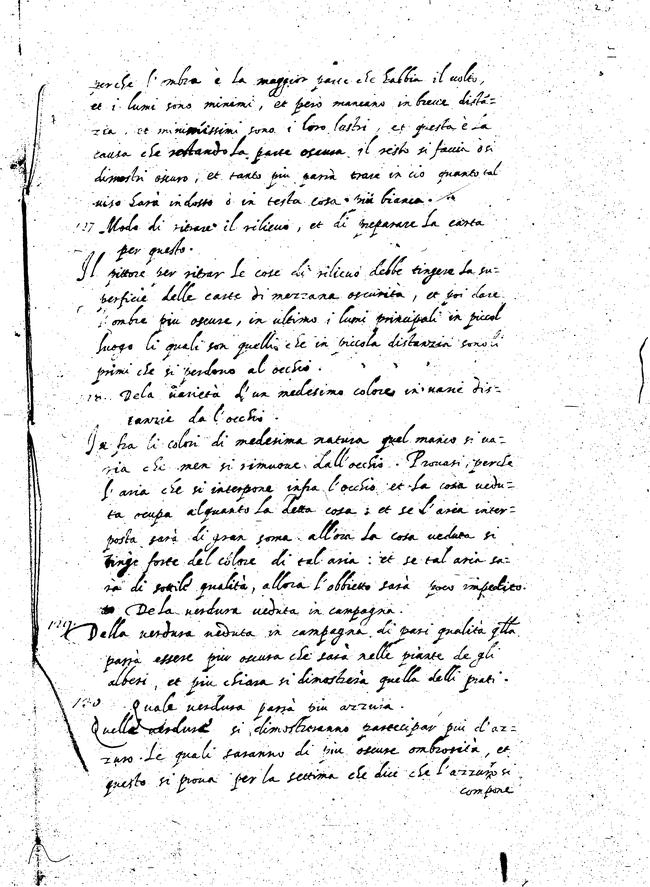 perche l'ombra è la maggior parte che habbia il volto,
et i lumi sono minimi, et però mancano in breve distã=
zia, et minimissimi sono i loro lustri, et questa è la
causa che restando la parte oscura il resto si faccia ò si
dimostri oscuro, et tanto piu parrà trare in cio quanto tal
viso harà indosso ò in testa cosa piu bianca.
127 Modo di ritrare il rilievo, et di preparare la carta
per questo.
Il pittore per ritrar le cose di rilievo debbe tingere la su=
perficie delle carte di mezzana oscurità, et poi dare
l'ombre piu oscure, in ultimo i lumi principali in piccol
luogo li quali son quelli che in piccola distanzia sono li
primi che si perdono al occhio.
Dela varietà d'un medesimo colore in varie dis=
tanzie da l'occhio.
In fra li colori di medesima natura quel manco si va=
ria che men si rimuove dall'occhio. Provasi, perche
l'aria che si interpone infra l'occhio et la cosa vedu=
ta ocupa alquanto la detta cosa: et se l'aria inter=
posta sarà di gran soma allora la cosa veduta si
tinge forte del colore di tal aria: et se tal aria sa=
rà di sottile qualità, allora l'obbietto sarà poco impedito.
Dela verdura veduta in campagna.
129 Della verdura veduta in campagna di pari qualità qlla
parrà essere piu oscura che sarà nelle piante de gli
alberi, et piu chiara si dimostrerà quella delli prati.
130 Quale verdura parrà piu azzura.
Quelle verdure si dimostreranno partecipar piu d'az=
zuro le quali saranno di piu oscure ombrosità, et
questo si prova per la settima che dice che l'azzuro si
compone